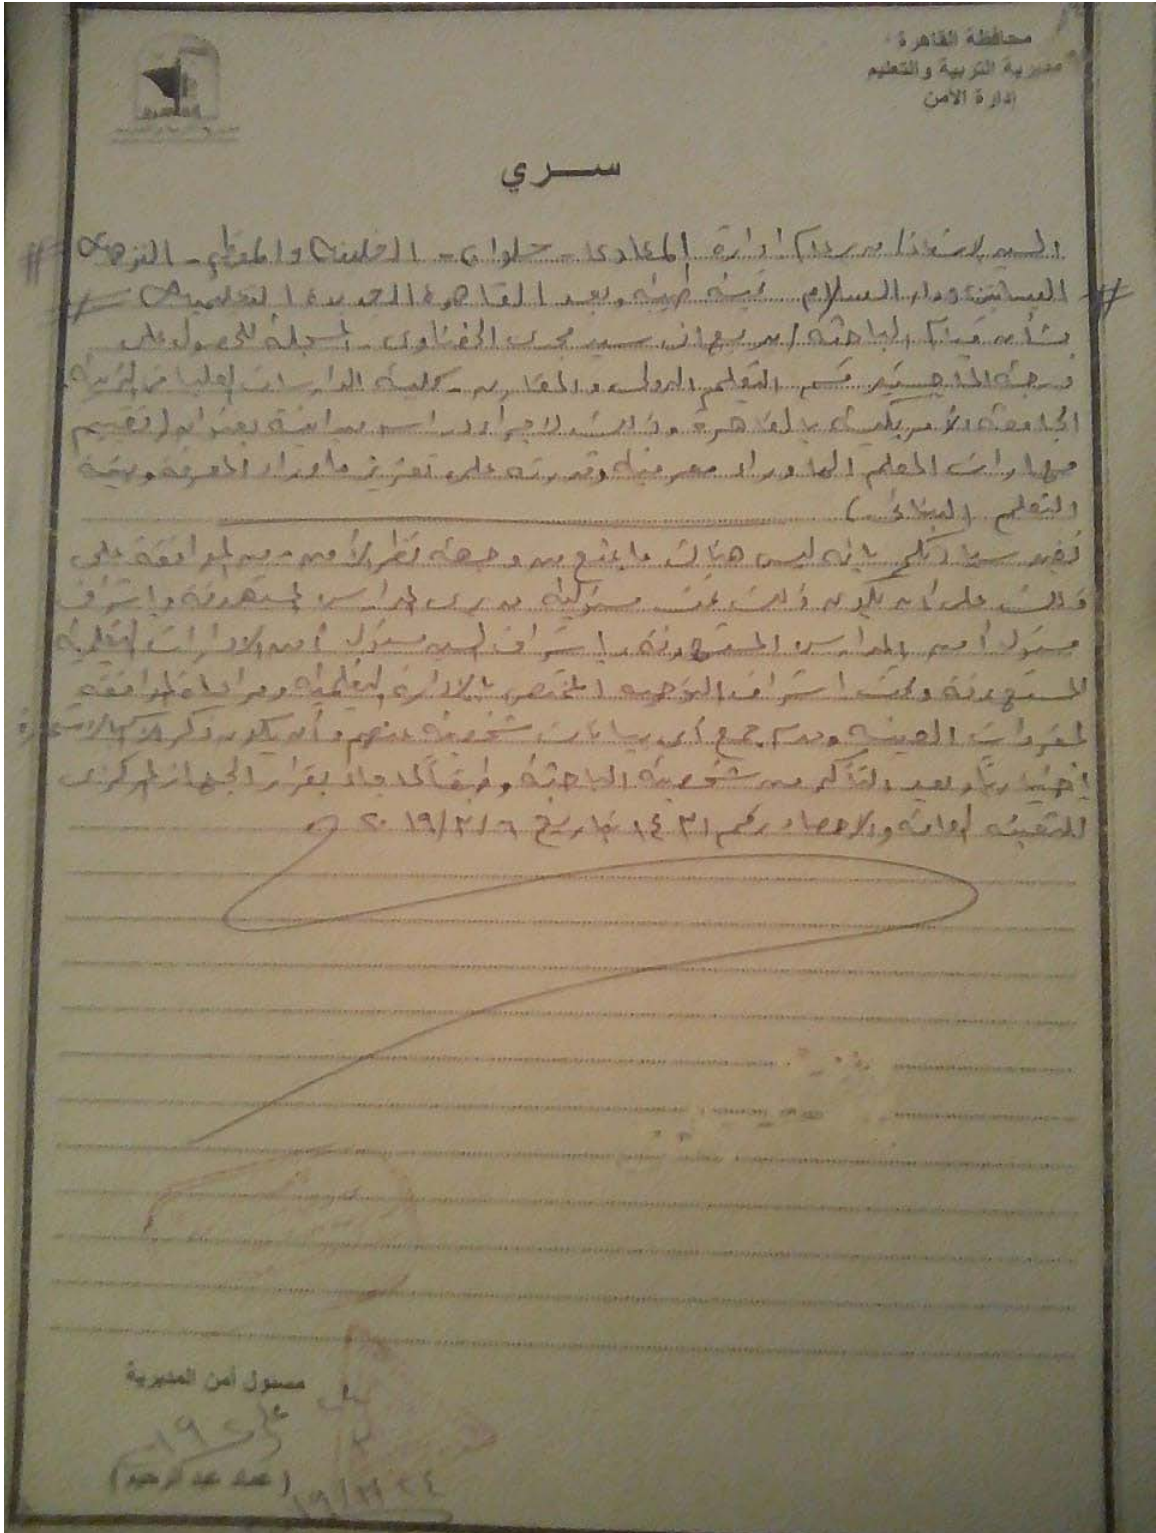 محافظة القاهرة
مديرية التربية والتعليم
إدارة الأمن
ســـري
السيد الأستاذ / مدير عام إدارة المعادى - حلوان - الخليفة والمقطم - النزهة
البساتين ودار السلام تحية طيبة وبعد القاهرة الجديدة التعليمية
بشأن قيام الباحثة / سيد مجدى الحفناوى - المسجلة للحصول على
درجة الماجستير قسم التعليم الدولى والمقارن - كلية الدراسات العليا فى التربية
الجامعة الأمريكية بالقاهرة وذلك لاجراء دراسة ميدانية بعنوان ( تقييم
مهارات المعلم الما وراء معرفية وقدرته على تعزيز ما وراء المعرفة وبيئة
التعلم البنائى )
نفيد سيادتكم بأنه ليس هناك ما يمنع من وجهة نظر الأمن - من الموافقة على
ذلك على ان يكون ذلك تحت مسئولية مديرى المدارس المستهدفة واشراف
مسئول أمن المدارس المستهدفة باشراف السيد مسئول أمن الادارات التعليمية
المستهدفة وتحت اشراف التوجيه المختص بالادارة التعليمية ومراعاة موافقة
مفردات العينة وعدم جمع أى بيانات شخصية عنهم وأن يكون ذكر الاسم بالاستمارة
إختياريا وبعد التأكد من شخصية الباحثة وطبقا لما جاء بقرار الجهاز المركزى
للتعبئة العامة والاحصاء رقم ١٤٣١ بتاريخ ٢٠١٩/٣/٦
مسئول أمن المديرية
(عماد عبد الرحيم)